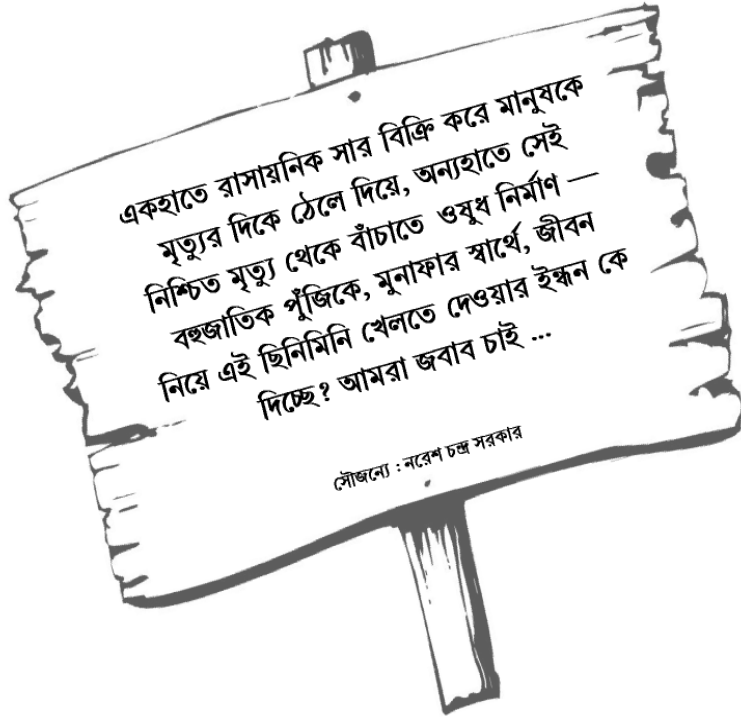 একহাতে রাসায়নিক সার বিক্রি করে মানুষকে
মৃত্যুর দিকে ঠেলে দিয়ে, অন্যহাতে সেই
নিশ্চিত মৃত্যু থেকে বাঁচাতে ওষুধ নির্মাণ —
বহুজাতিক পুঁজিকে, মুনাফার স্বার্থে, জীবন
নিয়ে এই ছিনিমিনি খেলতে দেওয়ার ইন্ধন কে
দিচ্ছে? আমরা জবাব চাই ...
সৌজন্যে : নরেশ চন্দ্র সরকার